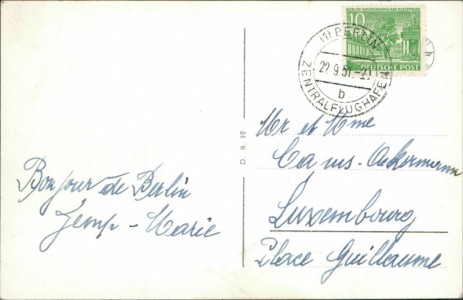 10
DEUTSCHE POST
(1) BERLIN
22.9.51.-21
b
ZENTRALFLUGHAFEN
D. 8. 39
Mr et Mme
Luxembourg
Place Guillaume
Bonjour de Berlin
Jemp-Marie